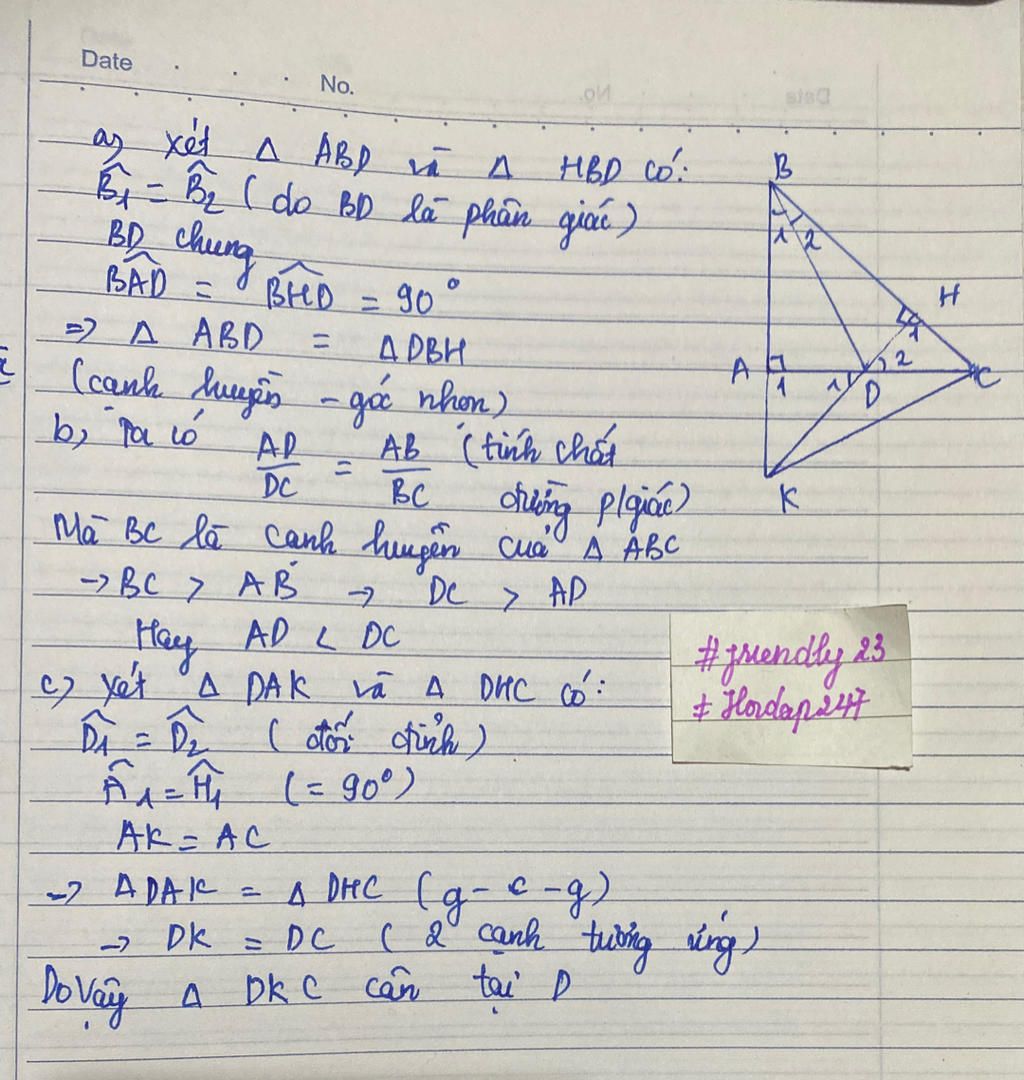 Date
No.
a) xét Δ ABD và Δ HBD có:
B̂1 = B̂2 (do BD là phân giác)
BD chung
B̂AD = B̂HD = 90°
=> Δ ABD = Δ DBH
(cạnh huyền - góc nhọn)
b, Ta có AD/DC = AB/BC (tính chất
đường p/giác)
Mà BC là cạnh huyền của Δ ABC
-> BC > AB -> DC > AD
Hay AD < DC
c) xét Δ DAK và Δ DHC có:
D̂1 = D̂2 (đối đỉnh)
Â1 = Ĥ1 (= 90°)
AK = AC
-> Δ DAK = Δ DHC (g - c - g)
-> DK = DC (2 cạnh tương ứng)
Do vậy Δ DKC cân tại D
B
1 2
H
1
A
1
1
D
2
C
K
#friendly23
#Hoidap247